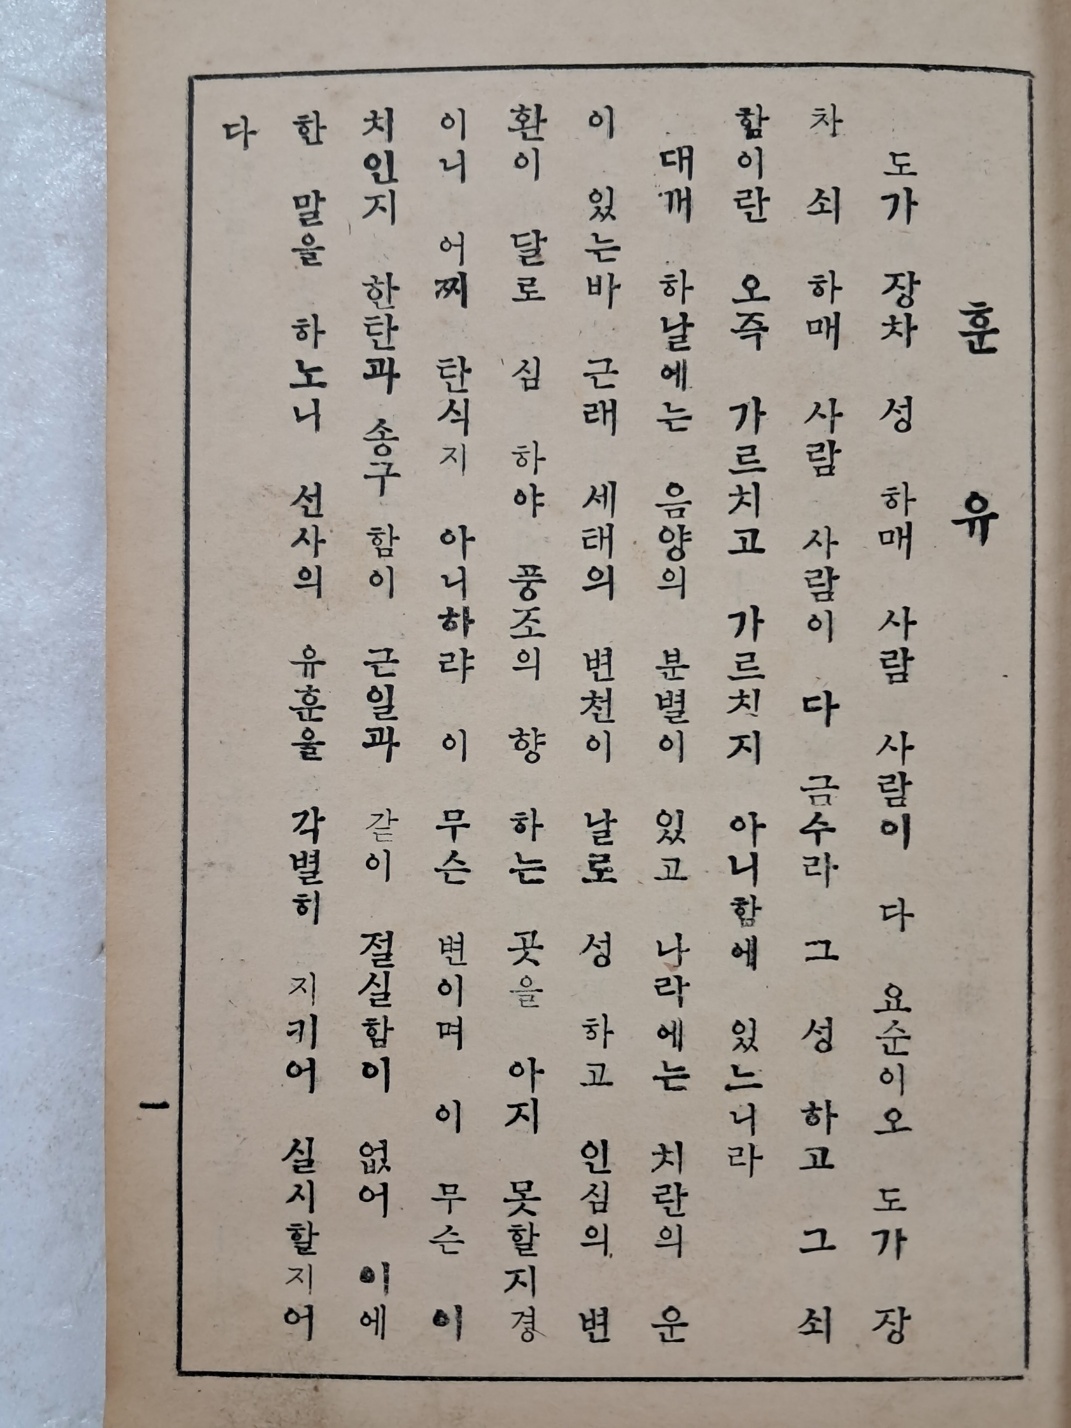 훈유
도가 장차 성 하매 사람 사람이 다 요순이오 도가 장
차 쇠 하매 사람 사람이 다 금수라 그 성 하고 그 쇠
함이란 오즉 가르치고 가르치지 아니함에 있느니라
대깨 하날에는 음양의 분별이 있고 나라에는 치란의 운
이 있는바 근래 세태의 변천이 날로 성 하고 인심의 변
환이 달로 심 하야 풍조의 향 하는 곳을 아지 못할지경
이니 어찌 탄식지 아니하랴 이 무슨 변이며 이 무슨 이
치인지 한탄과 송구 함이 근일과 같이 절실함이 없어 이에
한 말을 하노니 선사의 유훈을 각별히 지키어 실시할지어
다
一